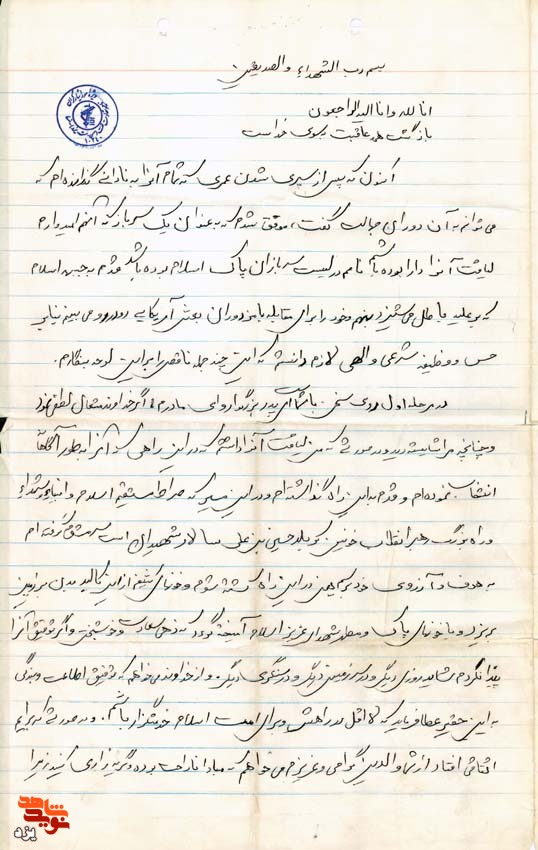 بسم رب الشهداء والصدیقین
انا لله وانا الیه راجعون
بازگشت همه عاقبت بسوی خداست
اکنون که پس از سپری شدن عمری که تمام آنرا به نادانی گذرانده‌ام که
می‌توانم به آن دوران جهالت گفت، موفق شدم که به عنوان یک سرباز که آنهم امیدوارم
لیاقت آنرا دارا بوده باشم نامم در لیست سربازان پاک اسلام بوده باشد قدم به جبهه اسلام
که بر علیه باطل می‌ستیزد بنهم وخود را برای مقابله با مزدوران بعثی آمریکایی
حس و وظیفه شرعی والهی لازم دانسته که این چند جمله ناقص را براین لوحه بنگارم.
در مرحله اول روی سخن با شما ای پدر بزرگوار و ای مادرم اگر خداوند متعال لطفی نمود
وچنانچه مرا شایسته دید و در صورتی که من لیاقت آنرا داشته که در این راهی که آنرا بطور آگاهانه
انتخاب نموده‌ام و قدم به این راه گذاشته‌ام و در این مسیر که صراط مستقیم اسلام و انبیاء و شهداء
وراه بزرگ رهبر انقلاب خونین کربلا حسین بن علی سالار شهیدان است سرمشق گرفته ام
به هدف و آرزوی خود برسم یعنی در این راه کشته شوم و خونهای کثیفم از این کالبد بدن بر زمین
بریزد و با خونهای پاک و مطهر شهدای عزیز اسلام آمیخته گردد که زهی سعادت و خوشبختی و اگر توفیق آنرا
پیدا نکردم شاید روزی دیگر و در سرزمینی دیگر و در سنگری دیگر. و از خداوند می‌خواهم که توفیق اطاعت و بندگی
به این حقیر عطا فرماید که لااقل در راهش و برای امت اسلام خدمتگزار باشم. و در صورتی که برایم
اتفاقی افتاد از شما والدین گرامی و عزیزم می‌خواهم که مبادا ناراحت بوده و گریه زاری کنید زیرا
نوید شاهد
یزد